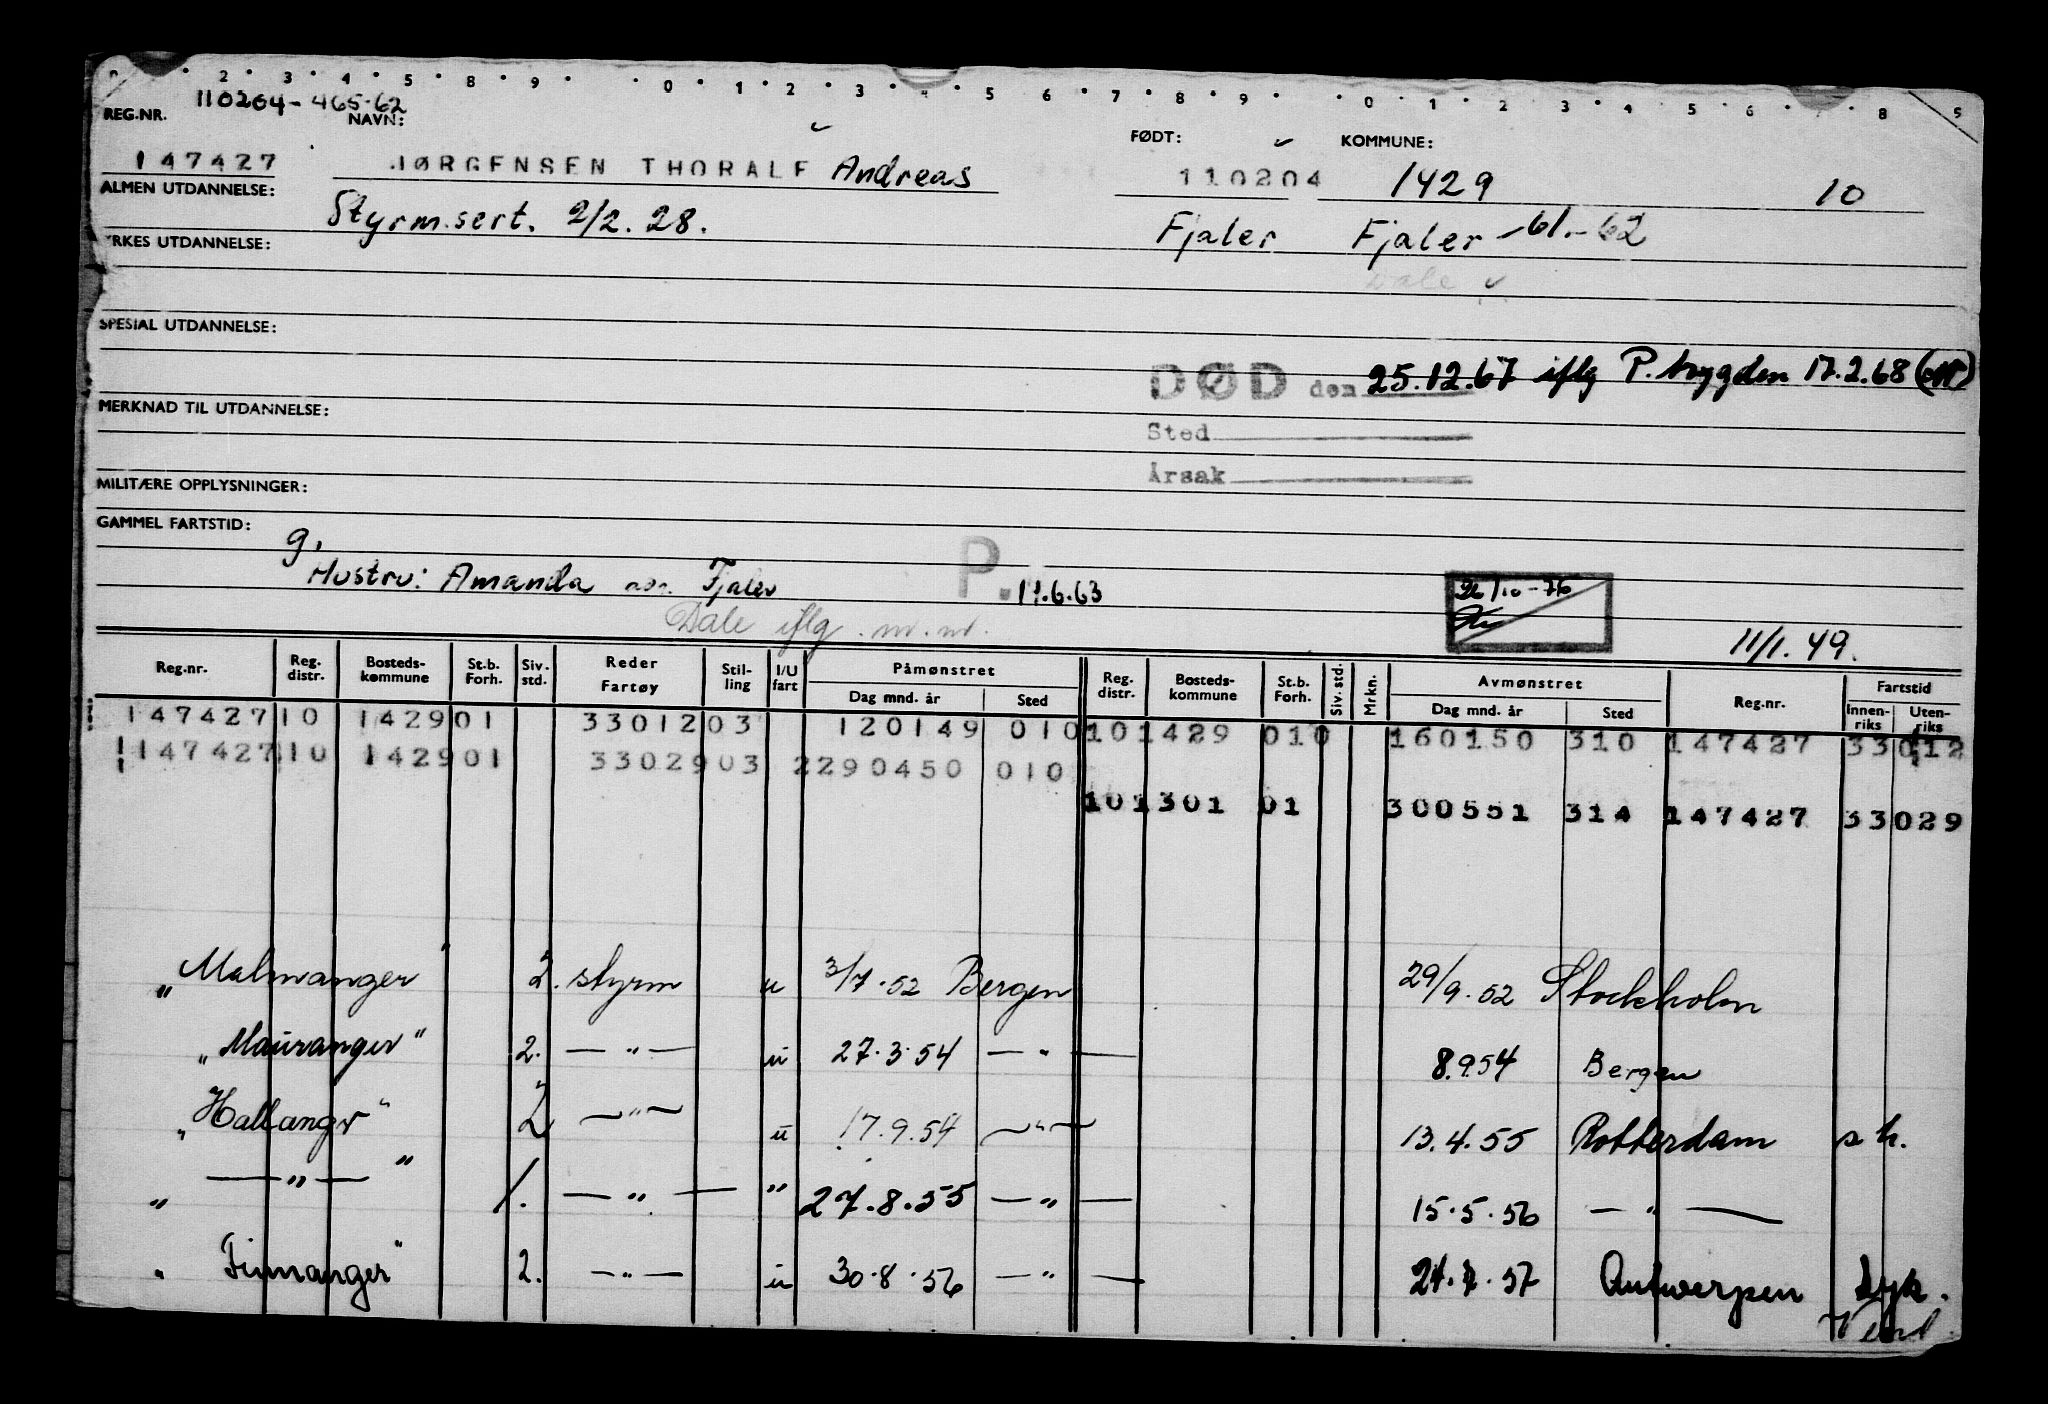 2 3 4 5 8 9 0 1 2 3 4 5 6 7 8 9 0 1 2 3 4 5 6 8 9
REG.NR. 110204-465-62
NAVN: FØDT: KOMMUNE:
147427 JØRGENSEN THORALF Andreas 110204 1429 10
ALMEN UTDANNELSE: Styrm.sert. 2/2.28. Fjaler Fjaler -61.-62
YRKES UTDANNELSE: Dale
SPESIAL UTDANNELSE:
DØD den 25.12.67 iflg P. trygden 17.2.68
MERKNAD TIL UTDANNELSE:
Sted
Årsak
MILITÆRE OPPLYSNINGER:
GAMMEL FARTSTID:
g.
Hustru: Amanda Fjaler P. 11.6.63 26/10-76
Dale iflg. m.m. 11/1.49.
Reg.nr. Reg. distr. Bosteds-kommune St.b. Forh. Siv. std. Reder Fartøy Stil-ling I/U fart Påmønstret Dag mnd. år Sted Reg. distr. Bosteds-kommune St.b. Forh. Siv. std. Mrkn. Avmønstret Dag mnd. år Sted Reg.nr. Fartstid Innen-riks Uten-riks
147427 10 1429 01 33012 03 120149 010 10 1429 010 160150 310 147427 33012
147427 10 1429 01 33029 03 2 290450 010
10 1301 01 300551 314 147427 33029
"Malmanger" 2. styrm u 3/7.52 Bergen 29/9.52 Stockholm
"Mauranger" 2. — " — u 27.3.54 — " — 8.9.54 Bergen
"Hallangr" 2 — " — u 17.9.54 — " — 13.4.55 Rotterdam s h.
" — " — " 1. — " — " 27.8.55 — " — 15.5.56 — " —
"Finnanger" 2. — " — u 30.8.56 — " — 24.7.57 Antwerpen syk.
Vend